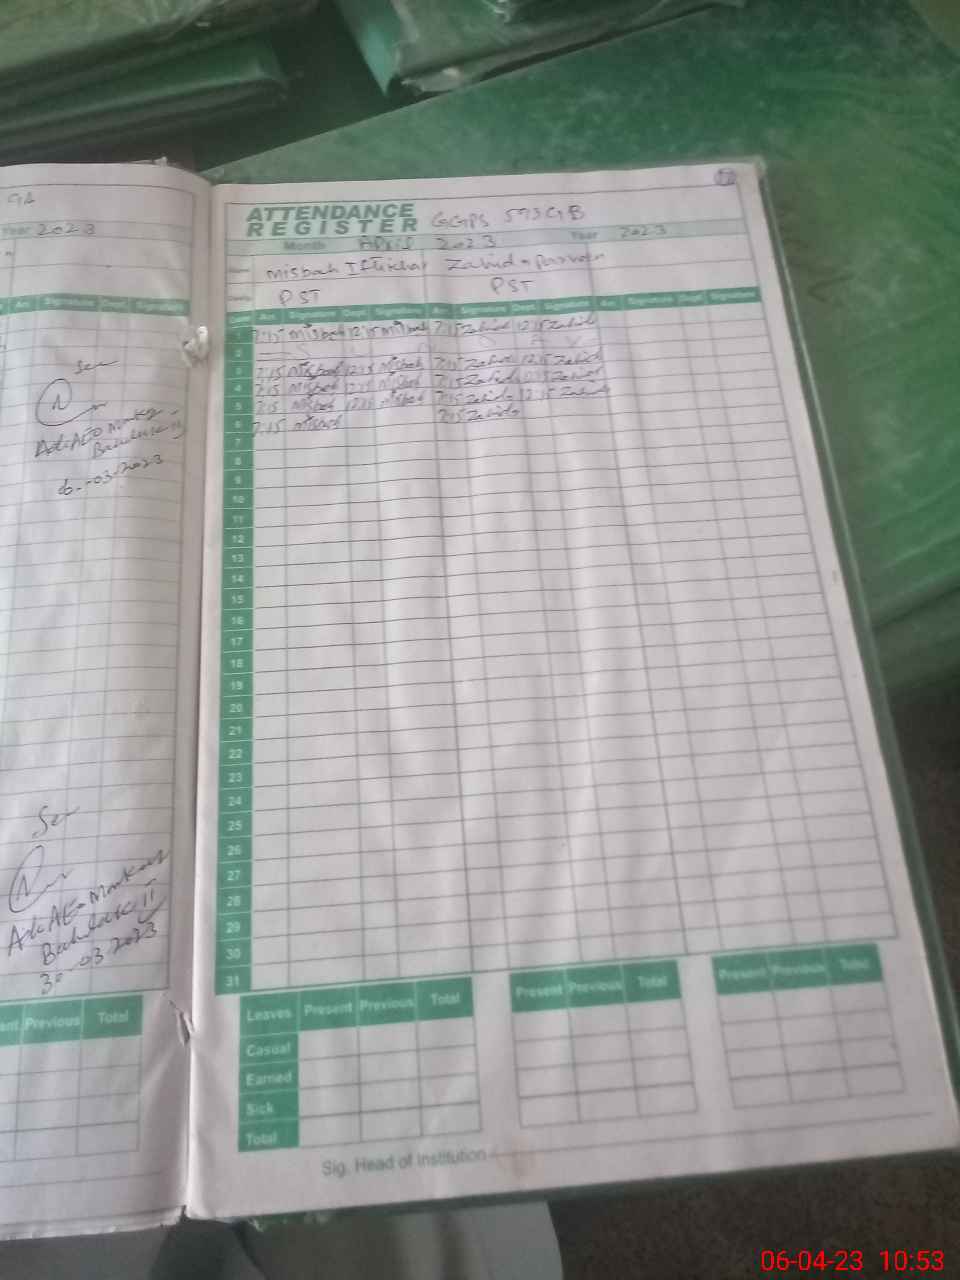 Year 2023
An. Signature Dept. Signature
Sen
A.A.E.O Markaz
06-03-2023
Sen
A.A.E.O Markaz
30-03-2023
Previous Total
ATTENDANCE
REGISTER GGPS 573 GB
Month April 2023 Year 2023
Name Misbah Iftikhar Zahida Parveen
PST PST
Date Arr. Signature Dept. Signature Arr. Signature Dept. Signature Arr. Signature Dept. Signature
1 7:15 Misbah 12:15 Misbah 7:15 Zahida 12:15 Zahida
2
3 7:15 Misbah 12:15 Misbah 7:15 Zahida 12:15 Zahida
4 7:15 Misbah 12:15 Misbah 7:15 Zahida 12:15 Zahida
5 7:15 Misbah 12:15 Misbah 7:15 Zahida 12:15 Zahida
6 7:15 Misbah 7:15 Zahida
7
8
9
10
11
12
13
14
15
16
17
18
19
20
21
22
23
24
25
26
27
28
29
30
31
Leaves Present Previous Total Present Previous Total Present Previous Total
Casual
Earned
Sick
Total
Sig. Head of Institution
06-04-23 10:53